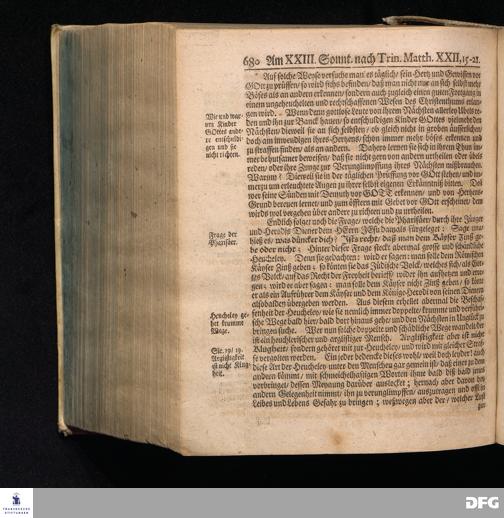 680 Am XXIII. Sonnt. nach Trin. Matth. XXII, 15-21.
Auf solche Weyse versuche man es täglich/ sein Hertz und Gewissen vor
GOtt zu prüffen/ so wird sichs befinden/ daß man nicht nur an sich selbst mehr
Böses als an andern erkennen/ sondern auch zugleich einen guten Fortgang in
einem ungeheuchelten und rechtschaffenen Wesen des Christenthums erlan-
gen wird. Wenn dann gottlose Leute von ihrem Nächsten allerley Ubels re-
den und ihn zur Banck hauen/ so entschuldigen Kinder GOttes vielmehr den
Nächsten/ dieweil sie an sich selbsten/ ob gleich nicht in groben äusserlichen/
doch am inwendigen ihres Hertzens/ schon immer mehr böses erkennen und
zu straffen finden/ als an andern. Dahero lernen sie sich in ihrem Thun im-
mer behutsamer beweisen/ daß sie nicht gern von andern urtheilen oder übels
reden/ oder ihre Zunge zur Verunglimpffung ihres Nächsten mißbrauchen.
Warum? Dieweil sie in der täglichen Prüffung vor GOtt stehen/ und im-
merzu um erleuchtete Augen zu ihrer selbst eigenen Erkänntniß bitten. Der
wer seine Sünden mit Demuth vor GOTT erkennen/ und von Hertzens-
Grund bereuen lernet/ und zum öfftern mit Gebet vor GOtt erscheinet/ dem
wirds wol vergehen über andere zu richten und zu urtheilen.
Endlich folget noch die Frage/ welche die Pharisäer durch ihre Jünger
und Herodis Diener dem HErrn JEsu damals fürgeleget: Sage uns/
hieß es/ was düncket dich? Ists recht/ daß man dem Käyser Zinß ge-
be oder nicht: Hinter dieser Frage steckt abermal grosse und schändliche
Heucheley. Denn sie gedachten: wird er sagen: man solle dem Römischen
Käyser Zinß geben; so könten sie das Jüdische Volck, welches sich/ als GOt-
tes Volck/ auf das Recht der Freyheit berieff/ wider ihn aufhetzen und erre-
gen; wird er aber sagen: man solle dem Käyser nicht Zinß geben/ so könte
er als ein Auffrührer dem Käyser und dem Könige Herodi von seinen Dienern
alsobalden übergeben werden. Aus diesem erhellet abermal die Beschaf-
fenheit der Heucheley/ wie sie nemlich immer doppelte/ krumme und verführi-
sche Wege bald hier/ bald dort hinaus gehe/ und den Nächsten in Unglück zu
bringen suche. Wer nun solche doppelte und schädliche Wege wandelt/ der
ist ein heuchlerischer und arglistiger Mensch. Arglistigkeit aber ist nicht
Klugheit/ sondern gehöret mit zur Heucheley/ und wird mit gleicher Straf-
fe vergolten werden. Ein jeder bedencke dieses wohl/ weil doch leyder! auch
diese Art der Heucheley unter den Menschen gar gemein ist/ daß einer zu dem
anderen kömmt/ mit schmeichelhafftigen Worten ihme bald diß bald jenes
vorbringet/ dessen Meynung darüber auslocket; hernach aber davon bey
andern Gelegenheit nimmt/ ihn zu verunglimpffen/ auszutragen und offt in
Leibes und Lebens Gefahr zu bringen; weßwegen aber der/ welcher Lust
zur
Wie und war-
um Kinder
GOttes ande-
re entschuldi-
gen und sie
nicht richten.
Frage der
Pharisäer.
Heucheley ge-
het krumme
Wege.
Sir. 19/ 19.
Arglistigkeit
ist nicht Klug-
heit.
FRANCKESCHE
STIFTUNGEN
DFG